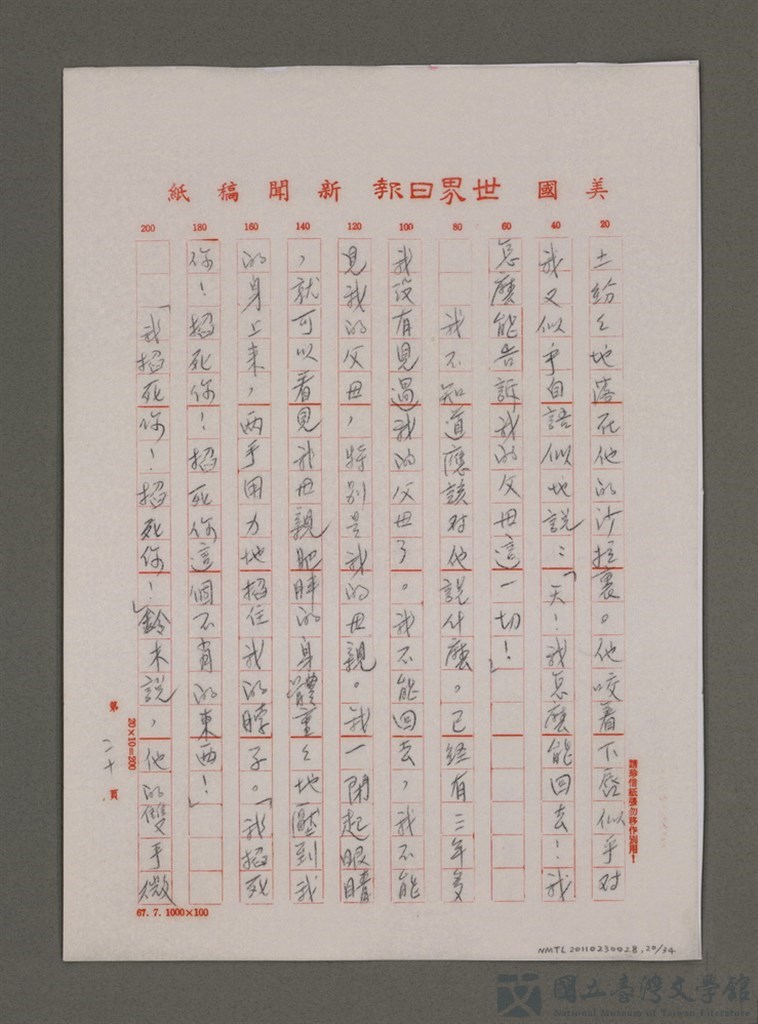 美國世界日報新聞稿紙
20
40
60
80
100
120
140
160
180
200
土紛々地落在他的沙拉裏。他咬着下唇似乎对
我又似乎自語似地說：「天！我怎麼能回去！我
怎麼能告訴我的父母這一切！」
我不知道應該对他說什麼，已经有三年多
我没有見過我的父母了。我不能回去，我不能
見我的父母，特別是我的母親。我一閉起眼睛
，就可以看見我母親肥胖的身體重々地壓到我
的身上来，両手用力地招住我的脖子。「我招死
你！招死你！招死你這個不肖的東西！」
「我招死你！招死你！」鈴木說，他的雙手微
請珍惜紙張勿移作別用！
第二十頁
20×10=200
67.7.1000×100
NMTL20110230028,20/34
國立臺灣文學館
National Museum of Taiwan Literature